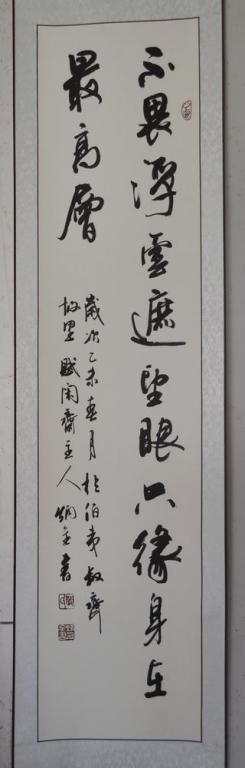 不畏浮雲遮望眼只緣身在
最高層
歲次乙未春月於伯夷叔齊
故里賦閑齋主人炳金書